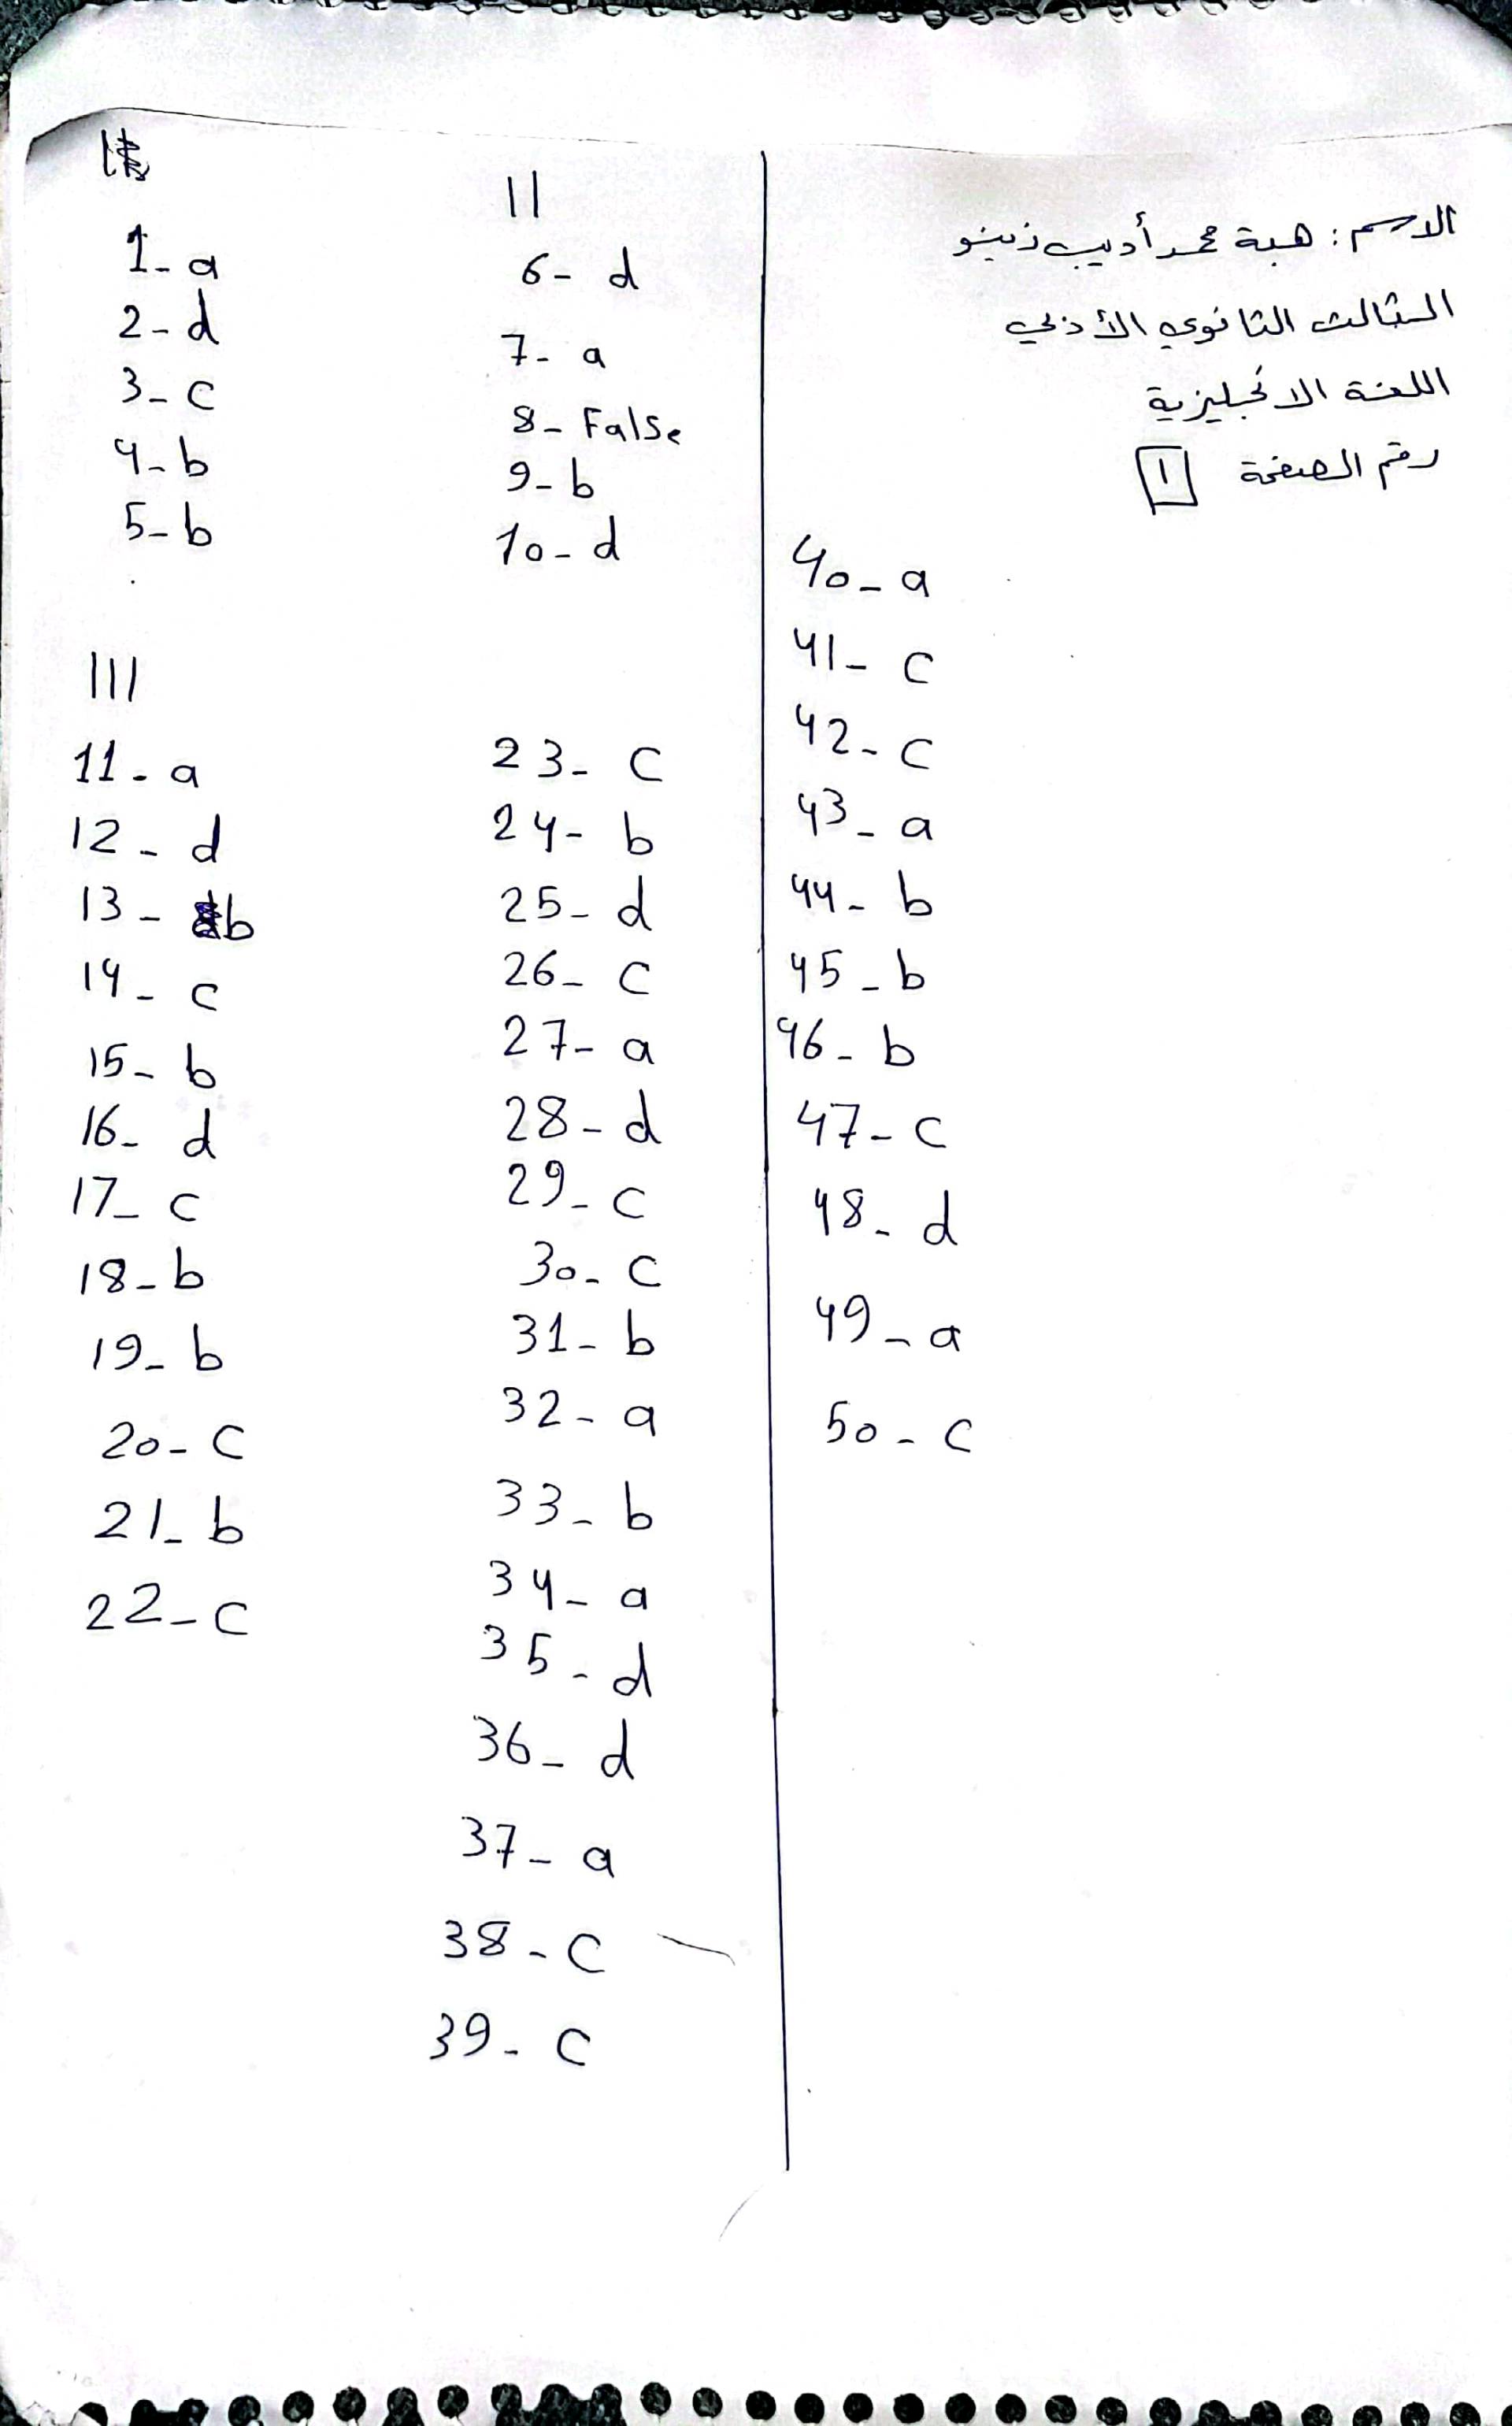 الاسم: هبة محمد أديب زينو
الثالث الثانوي الأدبي
اللغة الانجليزية
رقم الصفحة ١
I
1- a
2- d
3- c
4- b
5- b
II
6- d
7- a
8- False
9- b
10- d
III
11- a
12- d
13- b
14- c
15- b
16- d
17- c
18- b
19- b
20- c
21- b
22- c
23- c
24- b
25- d
26- c
27- a
28- d
29- c
30- c
31- b
32- a
33- b
34- a
35- d
36- d
37- a
38- c
39- c
40- a
41- c
42- c
43- a
44- b
45- b
46- b
47- c
48- d
49- a
50- c